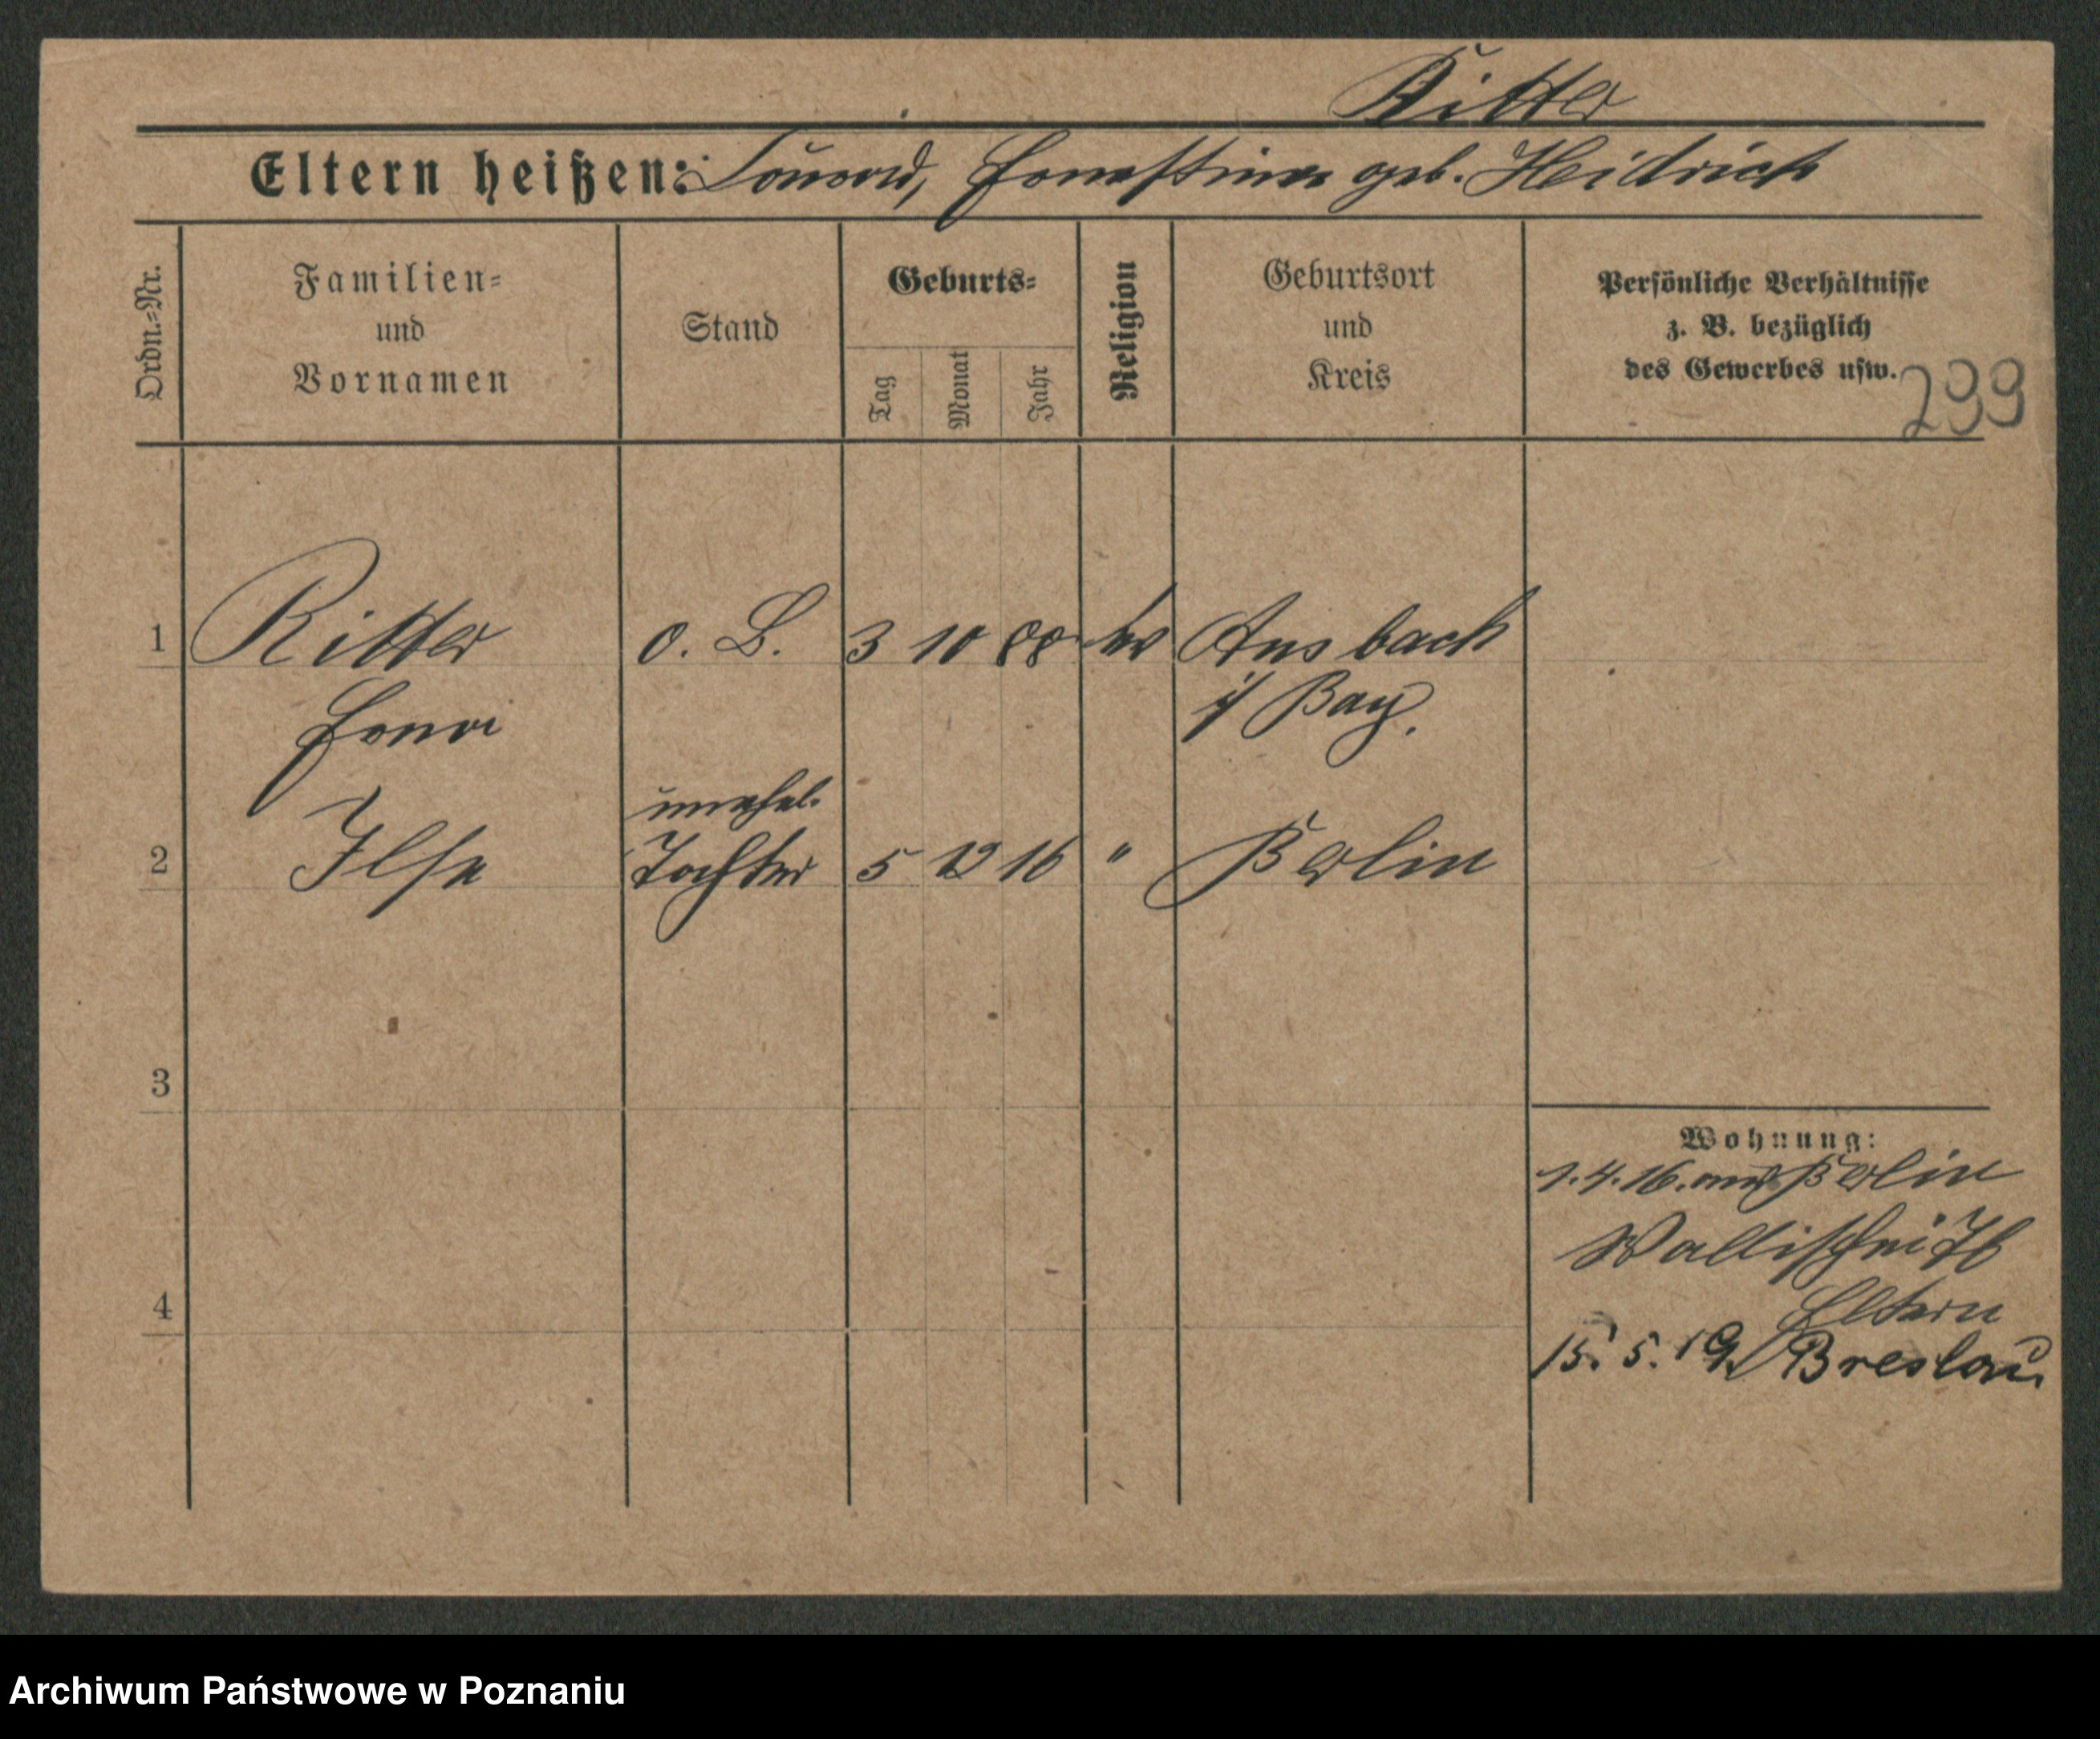 Ritter
Eltern heißen: Eduard, Ernestine geb. Heidrich
Ordn.-Nr.
Familien-
und
Vornamen
Stand
Geburts-
Tag
Monat
Jahr
Religion
Geburtsort
und
Kreis
Persönliche Verhältnisse
z. B. bezüglich
des Gewerbes usw.
299
1 Ritter o. B. 3 10 88 ev Ansbach
Erna i/ Bay.
unehel.
2 Ilse Tochter 5 12 16 " Berlin
3
Wohnung:
1.4.16. aus Berlin
4
Eltern
15. 5. 19 Breslau
Archiwum Państwowe w Poznaniu